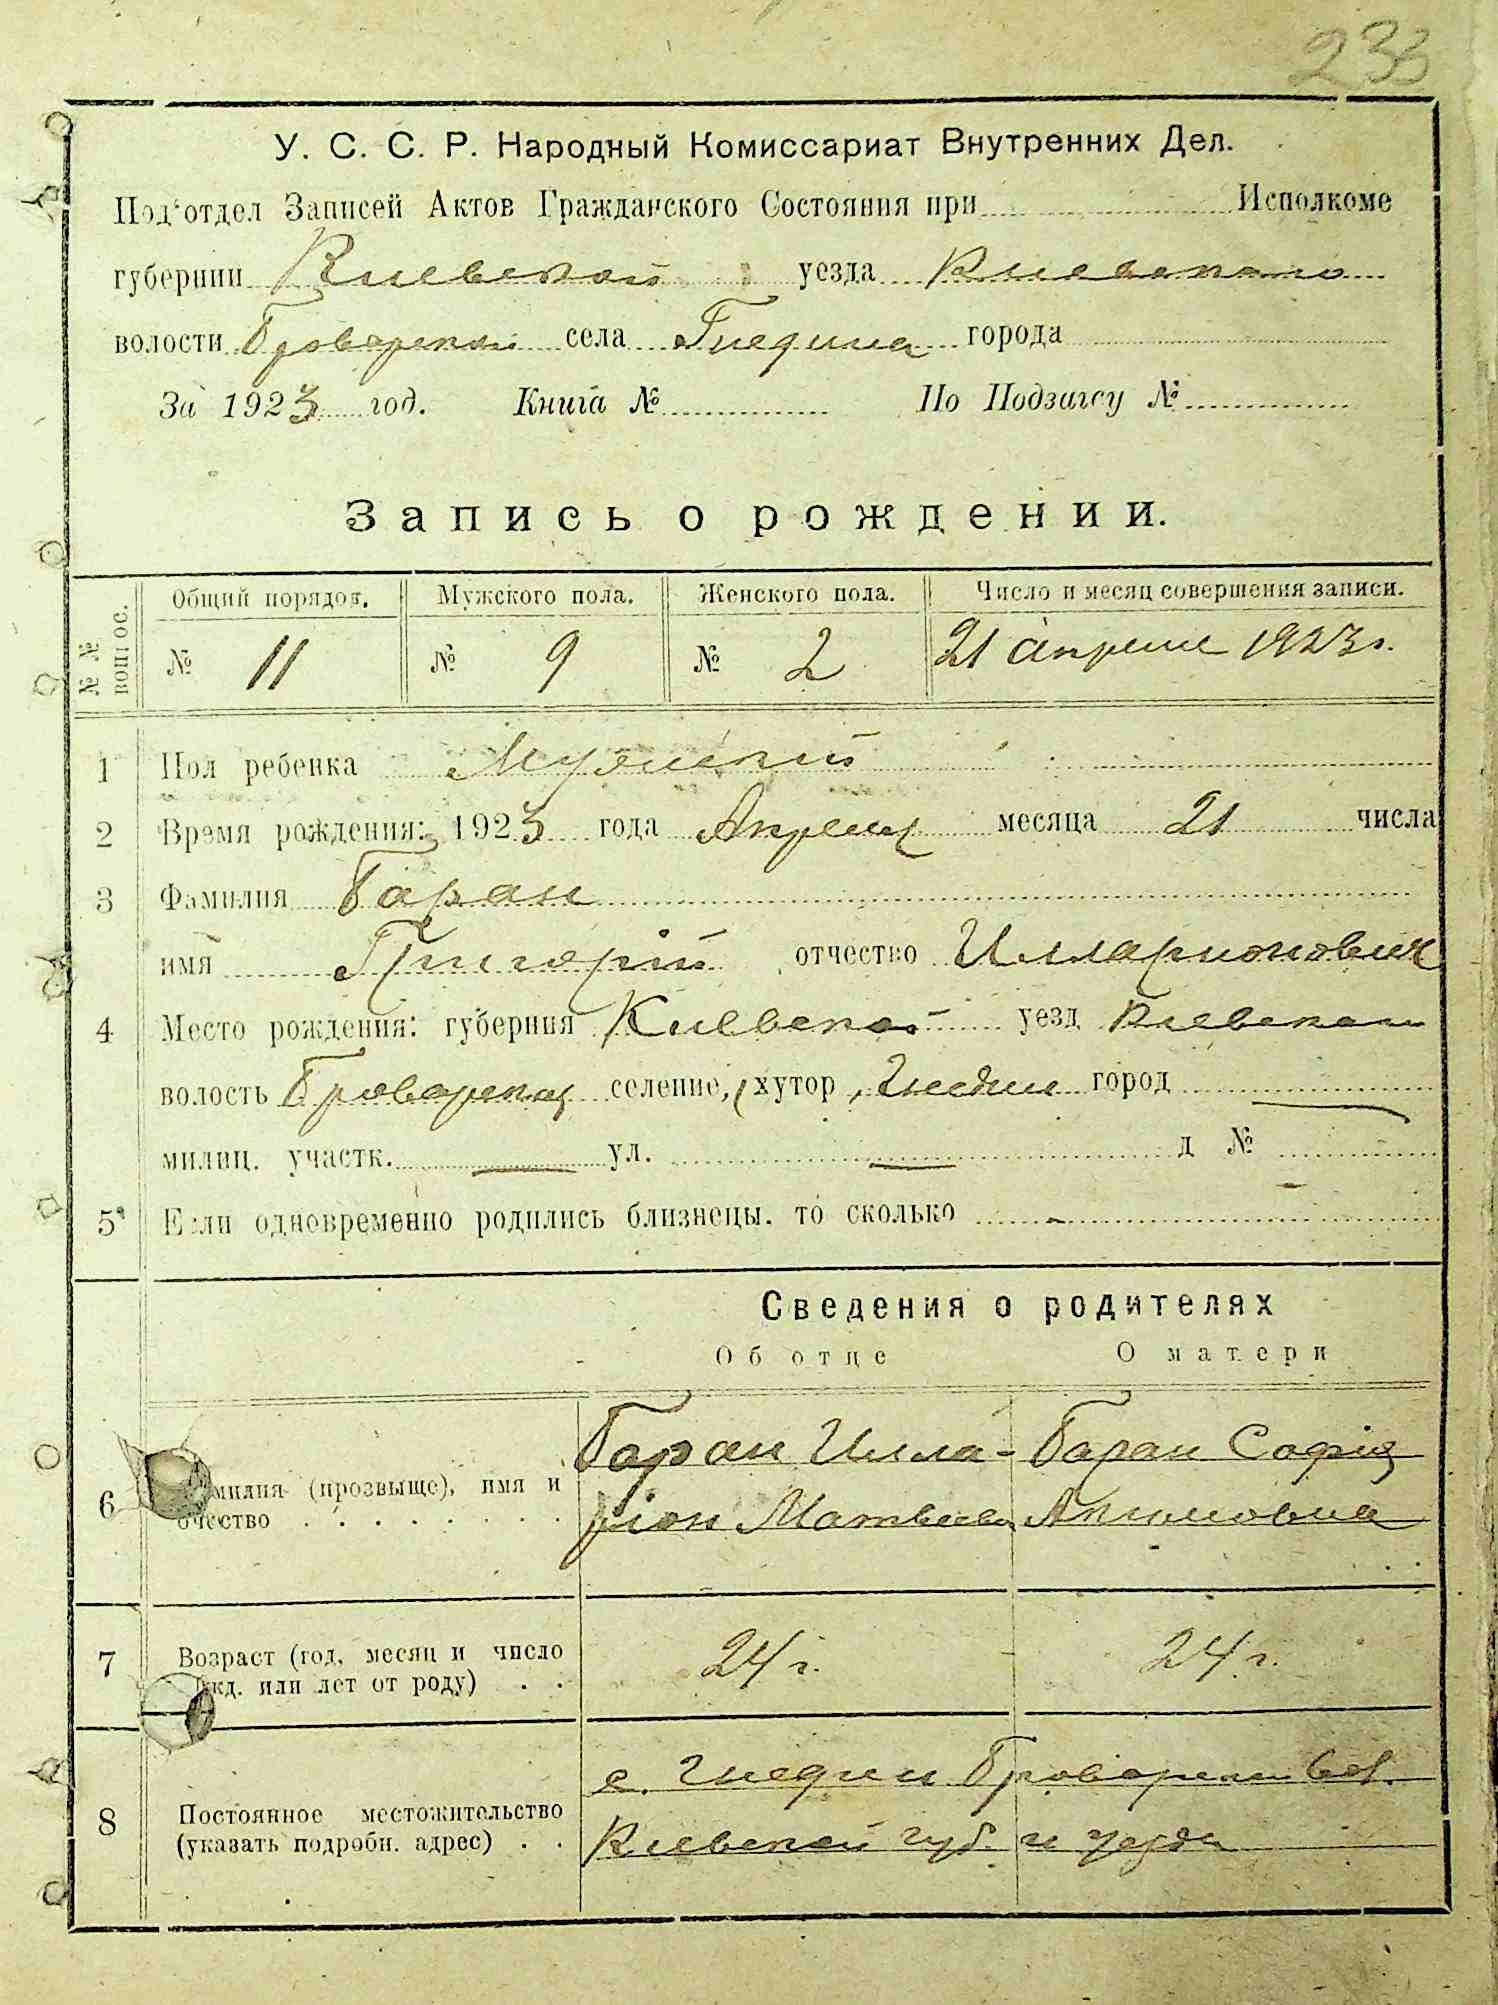 233
У. С. С. Р. Народный Комиссариат Внутренних Дел.
Под'отдел Записей Актов Гражданского Состояния при Исполкоме
губернии Киевской уезда Киевского
волости Броварской села Гнедина города
За 1923 год. Книга № По Подзагсу №
Запись о рождении.
№ № вопрос. Общий порядов. Мужского пола. Женского пола. Число и месяц совершения записи.
№ 11 № 9 № 2 21 апреля 1923 г.
1 Пол ребенка Мужский
2 Время рождения: 1923 года Апреля месяца 21 числа
3 Фамилия Баран
имя Григорій отчество Илларионович
4 Место рождения: губерния Киевской уезд Киевском
волость Броварская селение, (хутор, Гнедин город
милиц. участк. — ул. — д №
5 Если одновременно родились близнецы, то сколько -
Сведения о родителях
Об отце О матери
Баран Илла- Баран Софія
6 милия (прозвыще), имя и
очество рion Матвеев
7 Возраст (год, месяц и число 24 г. 24 г.
жд. или лет от роду)
с. Гнедин Броварской вол.
8 Постоянное местожительство
(указать подробн. адрес) Киевской губ. и уезда